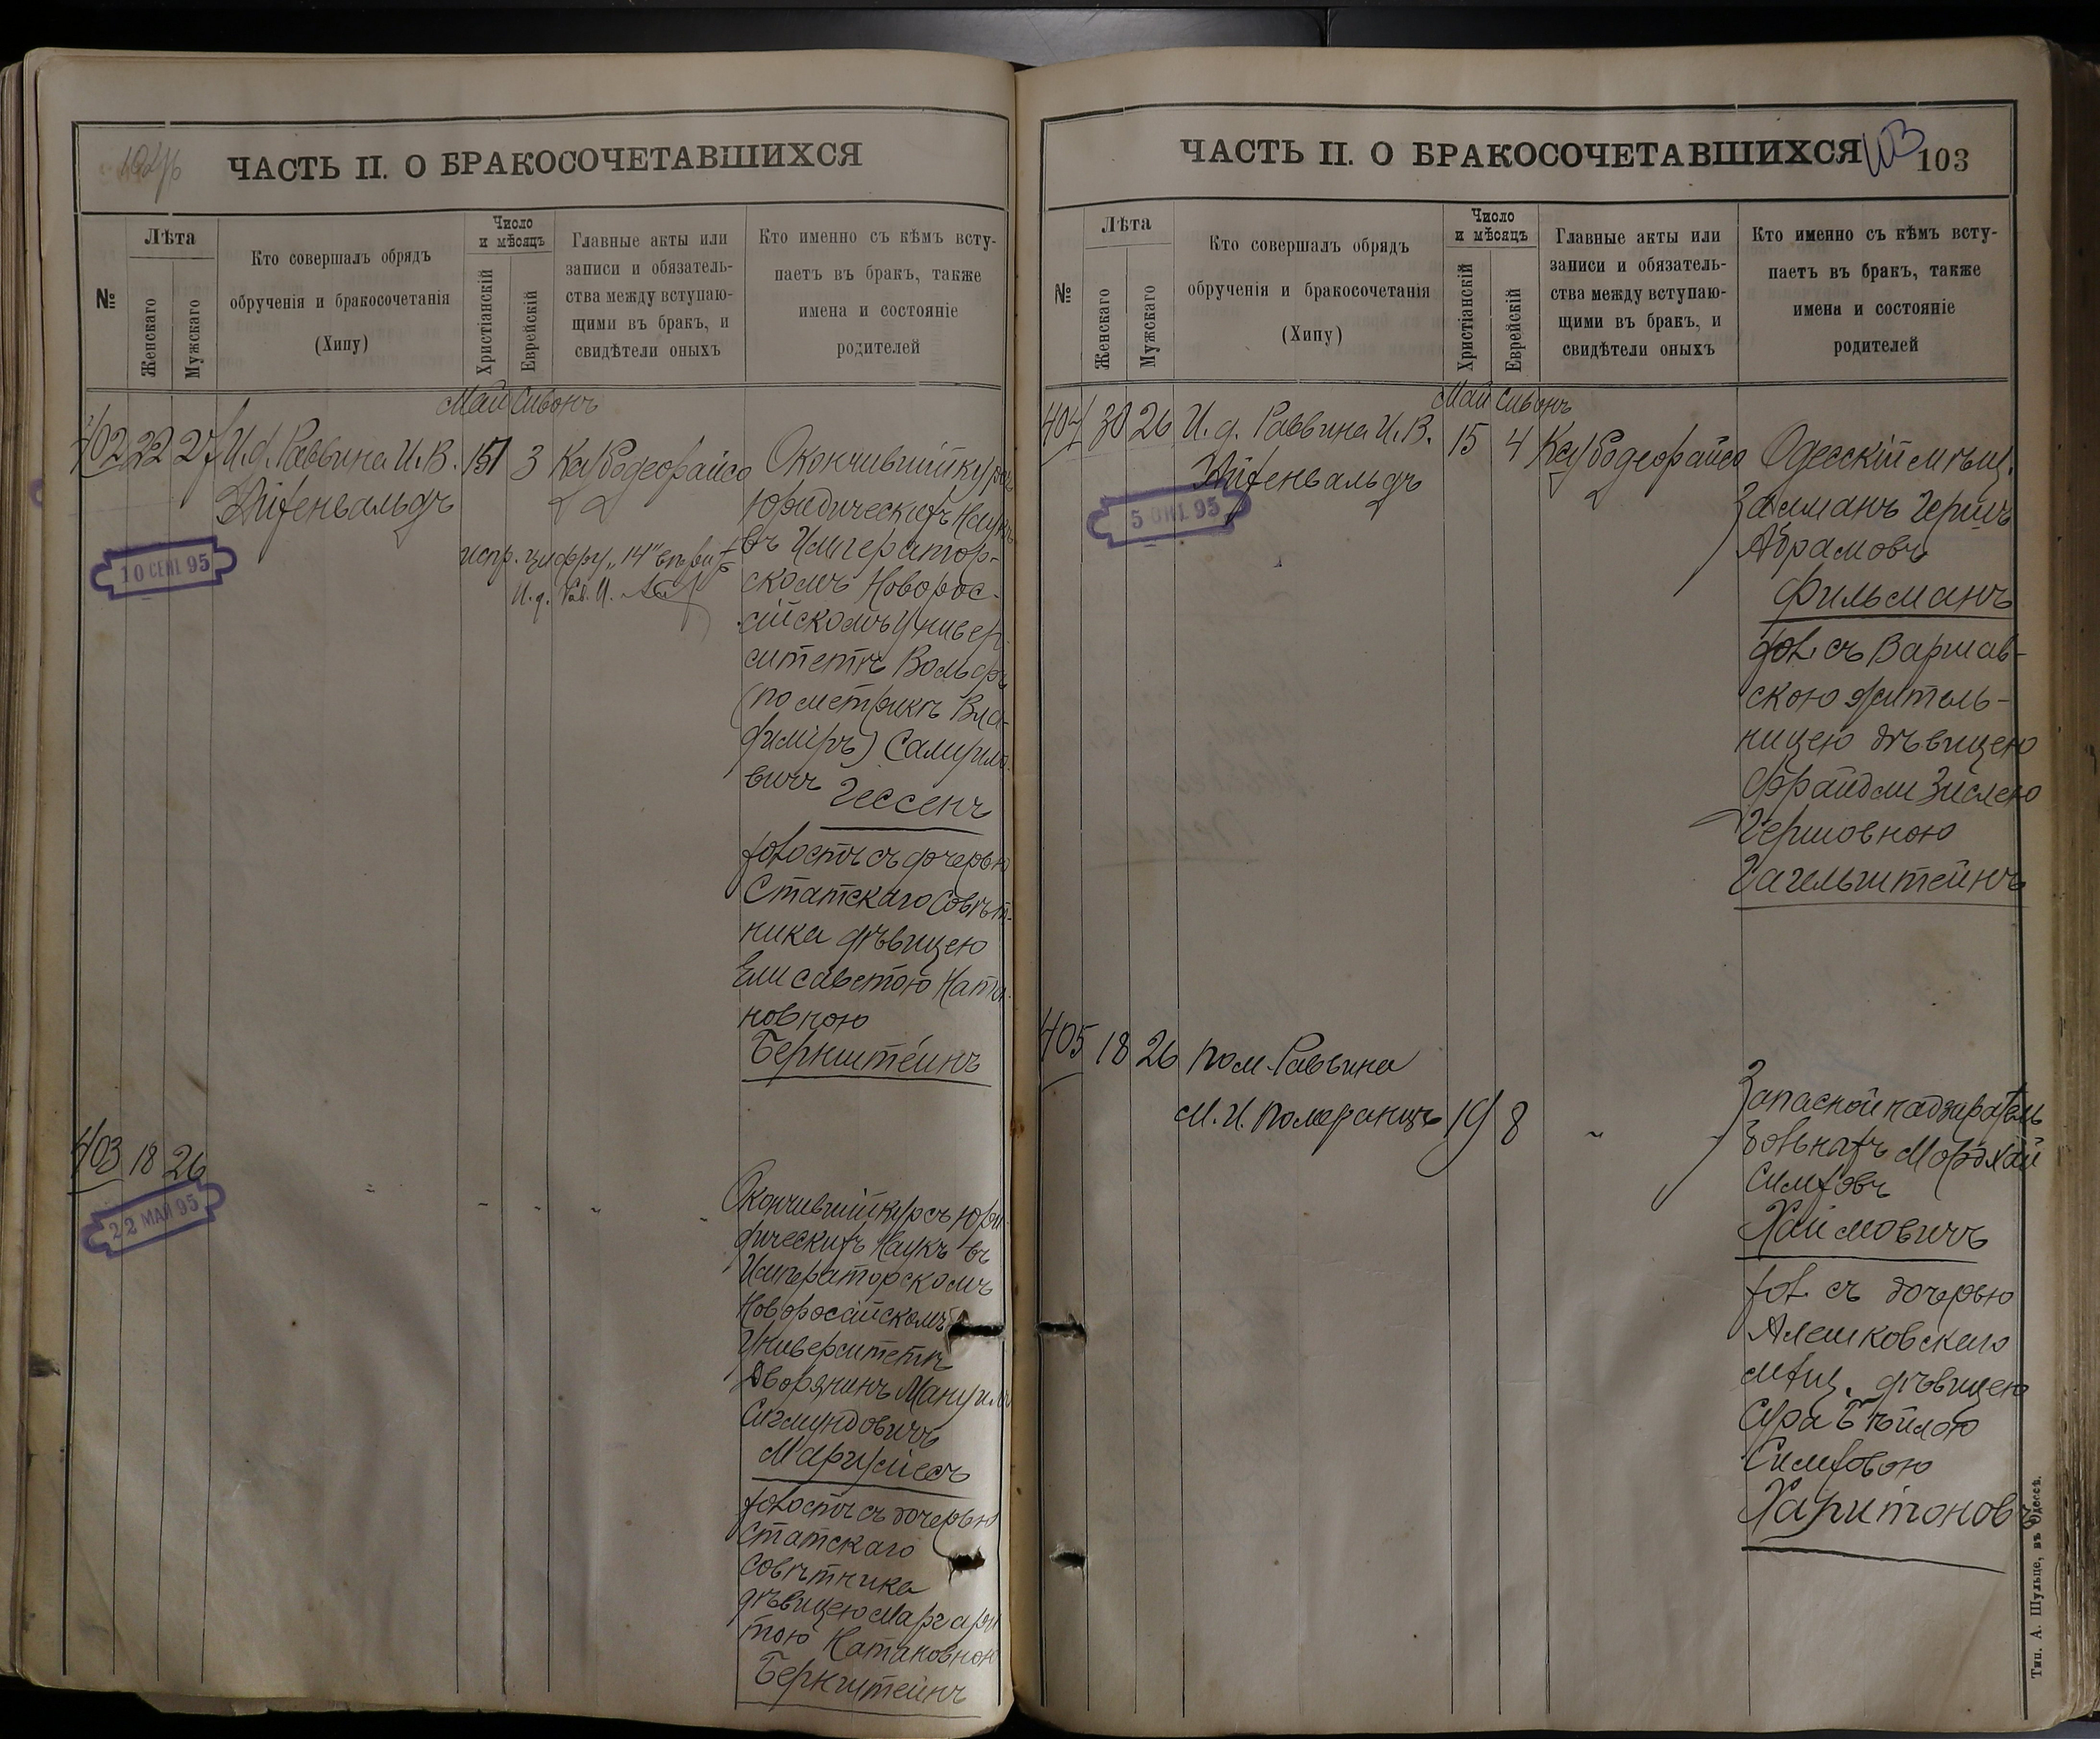 ЧАСТЬ II. О БРАКОСОЧЕТАВШИХСЯ
№
Лѣта
Женскаго
Мужскаго
Кто совершалъ обрядъ
обрученія и бракосочетанія
(Хипу)
Число
и мѣсяцъ
Христіанскій
Еврейскій
Главные акты или
записи и обязатель-
ства между вступаю-
щими въ бракъ, и
свидѣтели оныхъ
Кто именно съ кѣмъ всту-
паетъ въ бракъ, также
имена и состояніе
родителей
Май Сивонъ
402 22 27 И.д. Раввина И.В. 15 3
10 СЕН 95
испр. цифру "14" вѣрн
И.д. Рав. И.
Окончившій курсъ
Юридическихъ Наукъ
въ Император-
скомъ Новорос-
сійскомъ Универ-
ситетѣ Вольфъ
(по метрикѣ Вла-
диміръ) Самуило-
вичъ Гессенъ
холостъ съ дочерью
Статскаго Совѣт-
ника дѣвицею
Елисаветою Ната-
новною
Бернштейнъ
403 18 26
22 МАЙ 95
Окончившій курсъ Юри-
дическихъ Наукъ въ
Императорскомъ
Новороссійскомъ
Университетѣ
Дворянинъ Мануилъ
Сигмундовичъ
Маргуліесъ
холостъ съ дочерью
Статскаго
Совѣтника
дѣвицею Маргари
тою Натановною
Бернштейнъ
ЧАСТЬ II. О БРАКОСОЧЕТАВШИХСЯ
103
103
№
Лѣта
Женскаго
Мужскаго
Кто совершалъ обрядъ
обрученія и бракосочетанія
(Хипу)
Число
и мѣсяцъ
Христіанскій
Еврейскій
Главные акты или
записи и обязатель-
ства между вступаю-
щими въ бракъ, и
свидѣтели оныхъ
Кто именно съ кѣмъ всту-
паетъ въ бракъ, также
имена и состояніе
родителей
Май Сивонъ
404 30 26 И.д. Раввина И.В. 15 4
95
Одесскій мѣщ.
Залманъ Гершъ
Абрамовъ
Фильманъ
хол. съ Варшав-
скою житель-
ницею дѣвицею
Фрайдли Зислею
Гершовною
Гагельштейнъ
405 18 26 Пом. Раввина
М.И. Померанцъ 19 8
Запасной надзиратель
Мордхай
Симховъ
Хаймовичъ
хол. съ дочерью
Алешковскаго
мѣщ. дѣвицею
Сура Бейлою
Симховою
Харитоновъ
Тип. А. Шульце, въ Одессѣ.